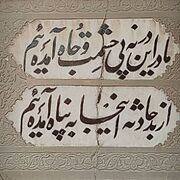 ما در این در نه پی حشمت و جاه آمده‌ایم
از بد حادثه اینجا به پناه آمده‌ایم